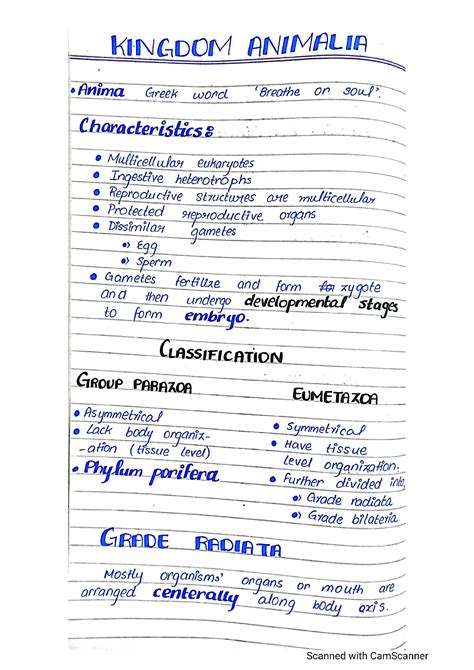 KINGDOM ANIMALIA
• Anima Greek word 'Breathe or soul'.
Characteristics:
• Multicellular eukaryotes
• Ingestive heterotrophs
• Reproductive structures are multicellular
• Protected reproductive organs
• Dissimilar gametes
•) Egg
•) Sperm
• Gametes fertilize and form zygote
and then undergo developmental stages
to form embryo.
CLASSIFICATION
GROUP PARAZOA
• Asymmetrical
• Lack body organiz-
-ation (tissue level)
• Phylum porifera
EUMETAZOA
• Symmetrical
• Have tissue
level organization.
• Further divided into,
•) Grade radiata
•) Grade bilateria
GRADE RADIATA
Mostly organisms' organs or mouth are
arranged centerally along body axis.
Scanned with CamScanner